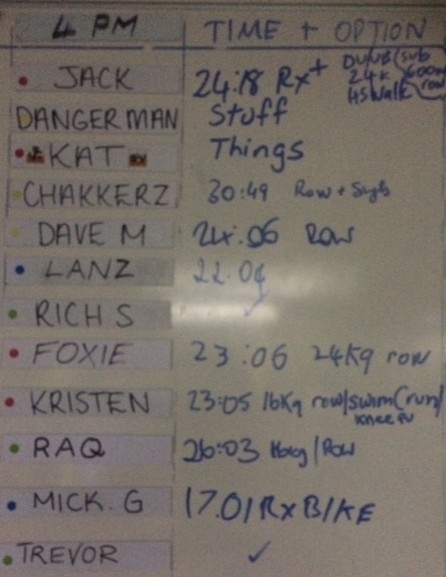 4 PM TIME + OPTION
JACK 24:18 Rx+ DU/UB/Sub
24K 600m
HSWalk row
DANGERMAN Stuff
KAT Things
CHAKKERZ 30:49 Row + Sub
DAVE M 24:06 Row
LANZ 22.09
RICH S ✓
FOXIE 23:06 24kg row
KRISTEN 23:05 16Kg row/swim(run)
knee
RAQ 26:03 /Row
MICK. G 17.01 Rx BIKE
TREVOR ✓